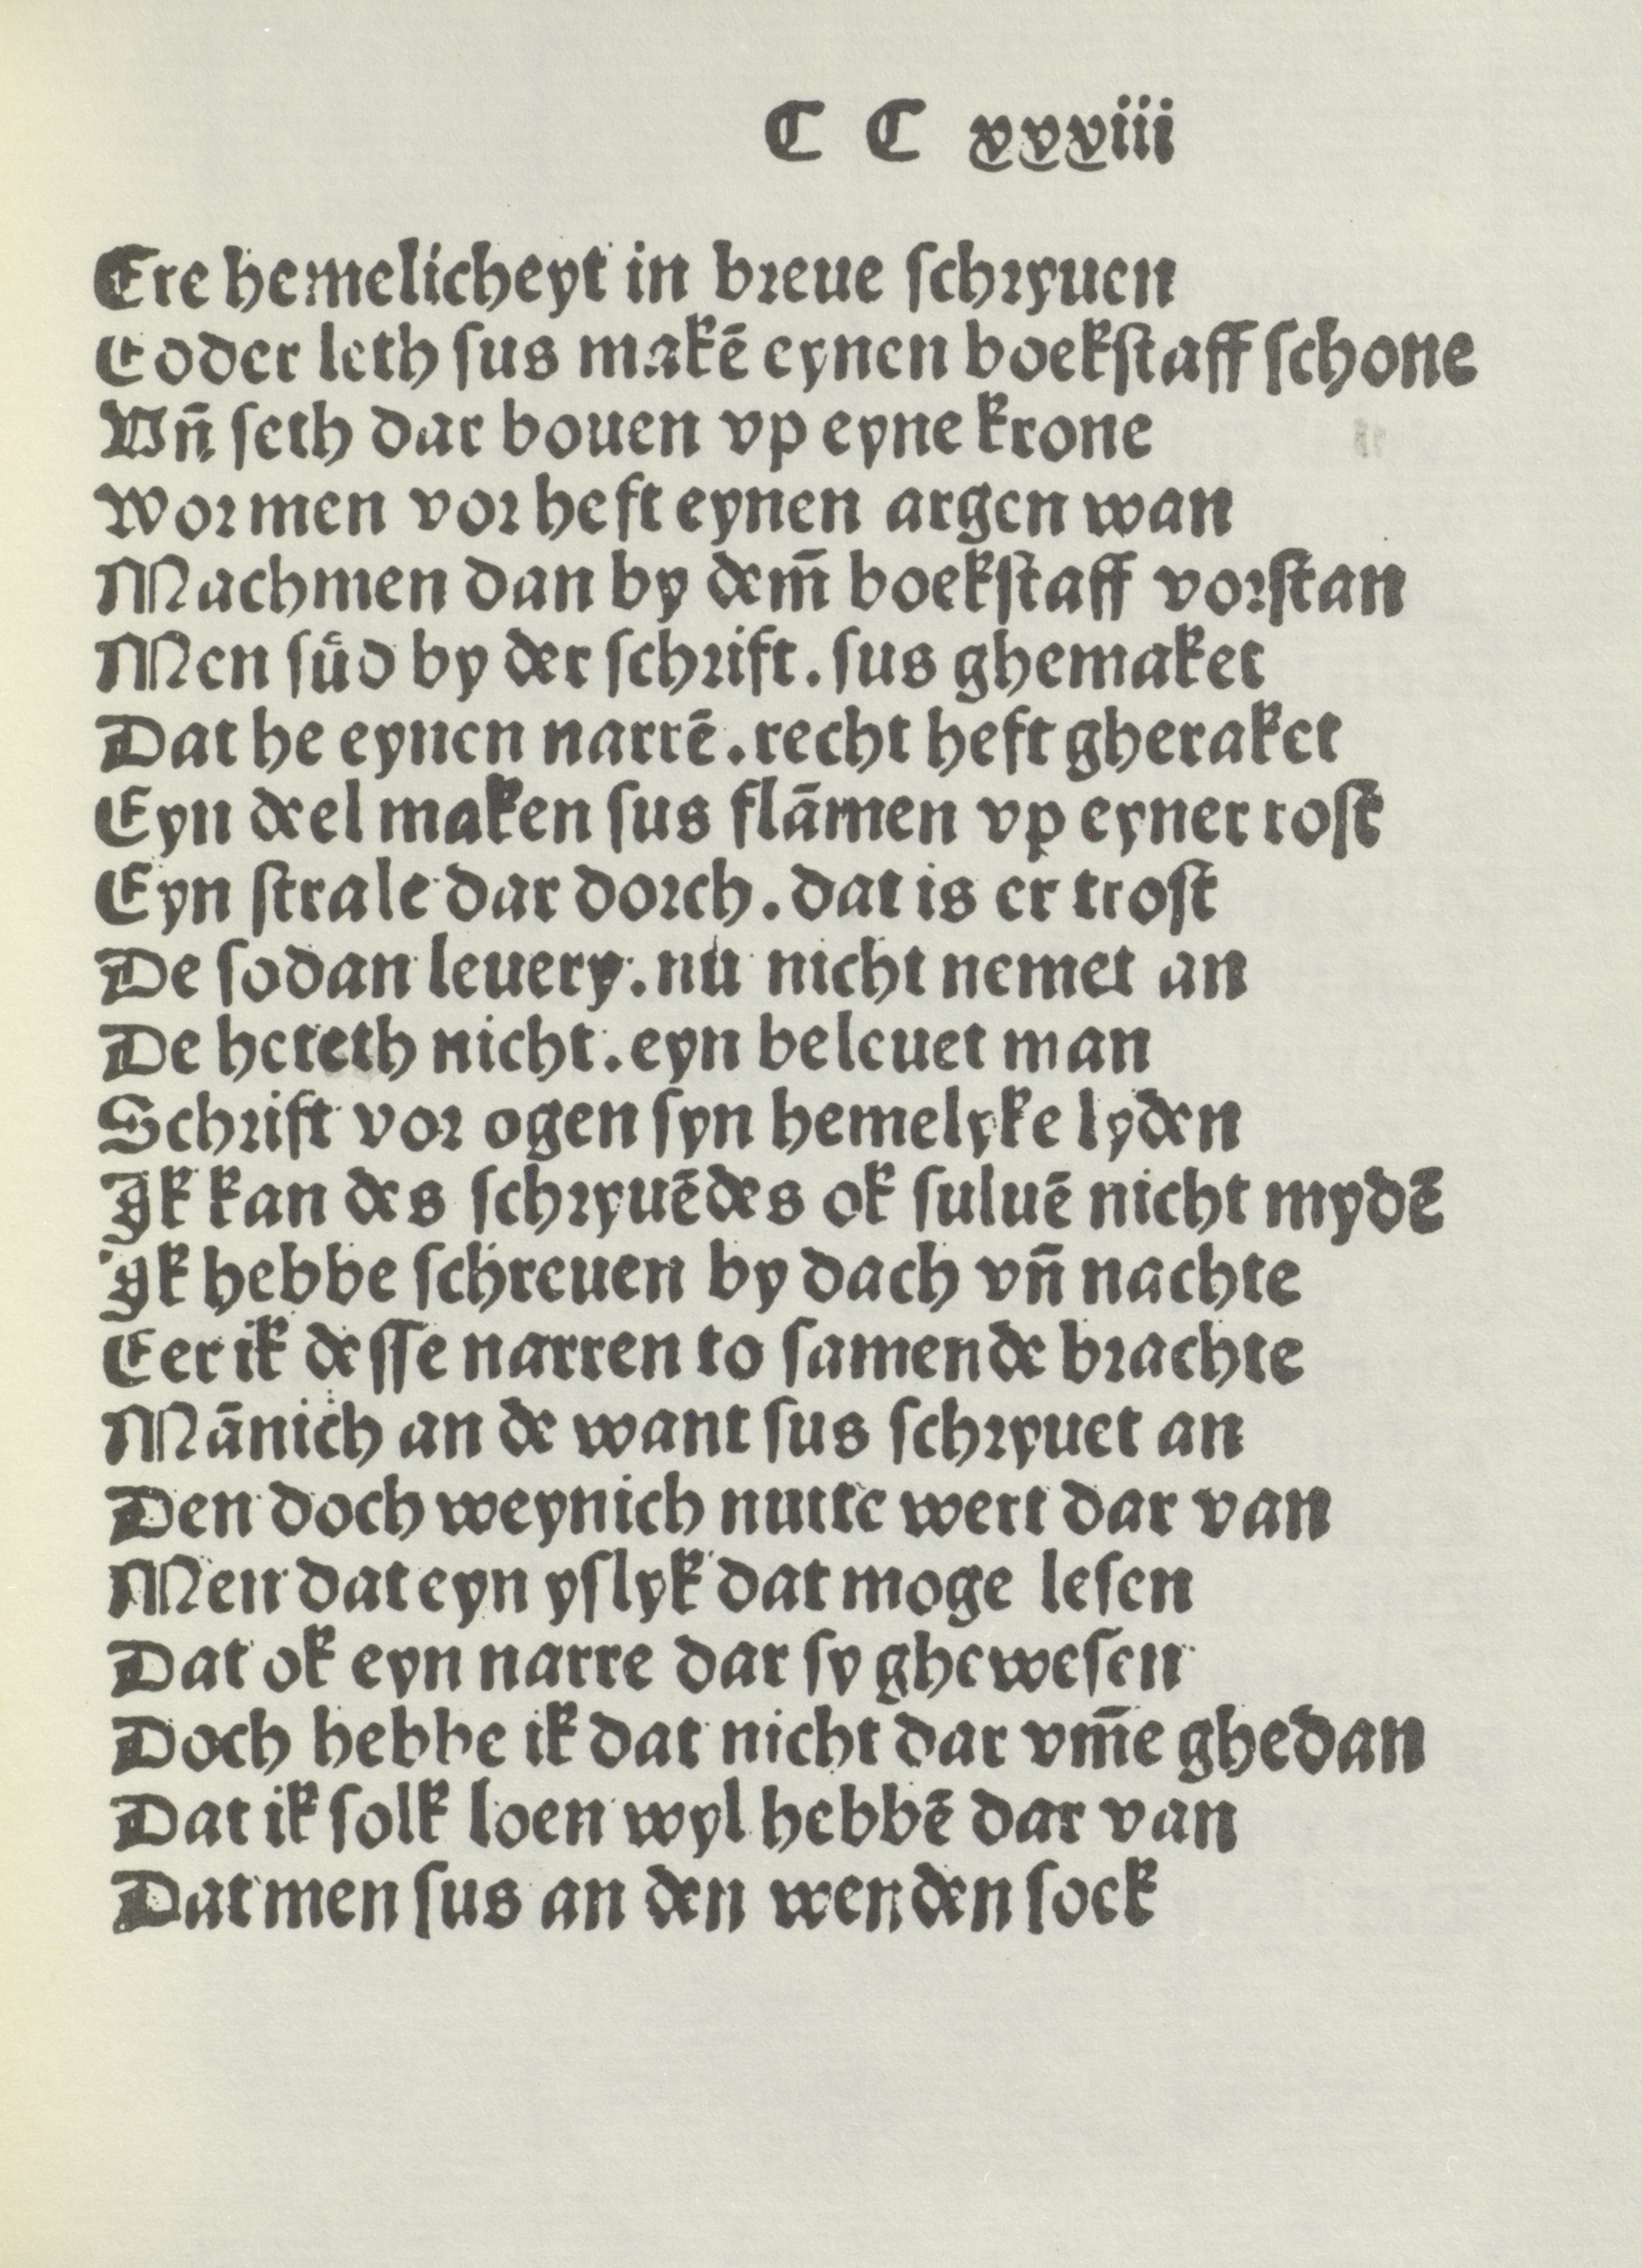 C C xxxviii
Ere hemelicheyt in breue ſchryuen
Eoder leth ſus makē eynen boekſtaff ſchone
Vñ ſeth dar bouen vp eyne krone
Wor men vor heft eynen argen wan
Mach men dan by dem̄ boekſtaff vorſtan
Men ſuͤd by der ſchrift. ſus ghemaket
Dat he eynen narrē. recht heft gheraket
Eyn deel maken ſus flāmen vp eyner roſt
Eyn ſtrale dar dorch. dat is er troſt
De ſodan leuery. nu nicht nemet an
De heteth nicht. eyn beleuet man
Schrift vor ogen ſyn hemelyke lyden
Jk kan des ſchryuēdes ok ſuluē nicht mydē
Jk hebbe ſchreuen by dach vñ nachte
Eer ik deſſe narren to ſamende brachte
Mānich an de want ſus ſchryuet an
Den doch weynich nutte wert dar van
Men dat eyn yſlyk dat moge leſen
Dat ok eyn narre dar ſy gheweſen
Doch hebbe ik dat nicht dar vm̄e ghedan
Dat ik ſolk loen wyl hebbē dar van
Dat men ſus an den wenden ſock